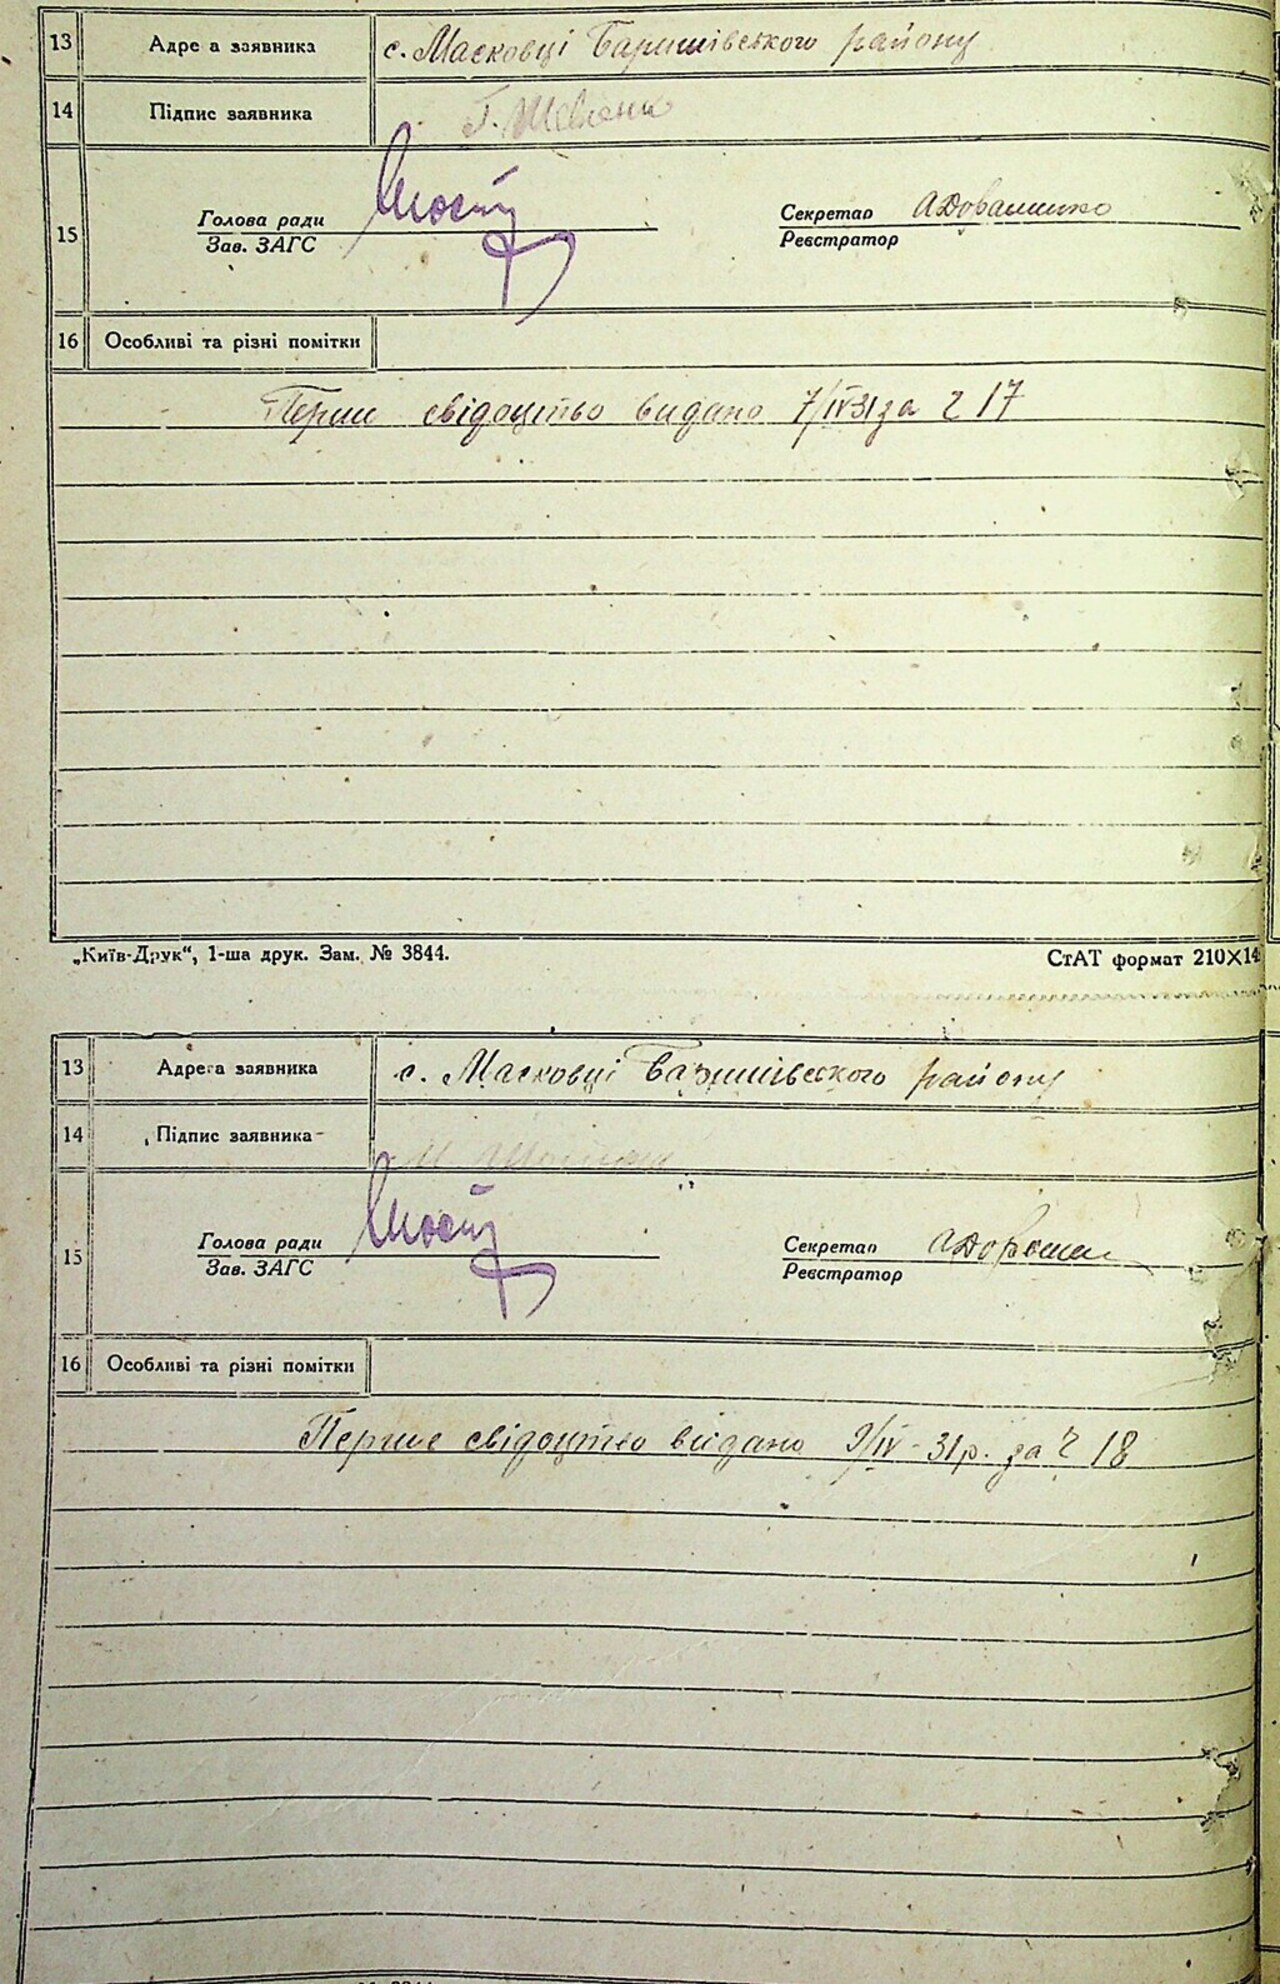 13 Адре а заявника с. Масковці Баришівського району
14 Підпис заявника Г.
15 Голова ради Секретар
Зав. ЗАГС Реєстратор
16 Особливі та різні помітки
Перше свідоцтво видано 7/IV 31 за Ч 17
„Київ-Друк“, 1-ша друк. Зам. № 3844. СтАТ формат 210×14
13 Адреса заявника с. Масковці Баришівського району
14 Підпис заявника
15 Голова ради Секретар
Зав. ЗАГС Реєстратор
16 Особливі та різні помітки
Перше свідоцтво видано 9/IV-31р. за Ч 18